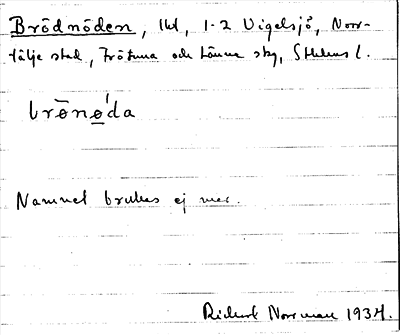 Brödnöden, lht, 1-2 Vigelsjö, Norr-
tälje stad, Frötuna och Länna skg, Sthlms l.
brønǿ̲da
Namnet brukas ej mer.
Rickard Norrman 1934.